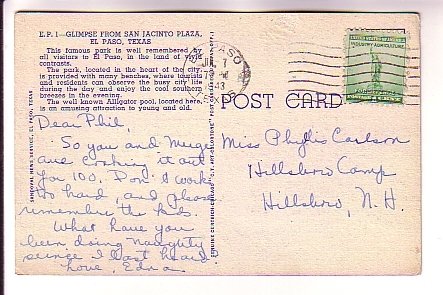 E.P. 1—GLIMPSE FROM SAN JACINTO PLAZA,
EL PASO, TEXAS
This famous park is well remembered by
all visitors to El Paso, in the land of vivid
contrasts.
The park, located in the heart of the city
is provided with many benches, where tourists
and residents can observe the busy city life
during the day and enjoy the cool southern
breezes in the evening.
The well known Alligator pool, located here,
is an amusing attraction to young and old.
SANDOVAL NEWS SERVICE, EL PASO, TEXAS
Dear Phil,
So you and Marge
are cooking it out
for 100. Don't work
so hard, and please
remember the kids.
What have you
been doing naughty
since I last heard
Love, Edna
GENUINE CURTEICH-CHICAGO "C.T. ART-COLORTONE" POST CARD
EL PASO
7
INDUSTRY AGRICULTURE
POST CARD
Miss Phyllis Carlson
Hillsboro Camp
Hillsboro, N. H.